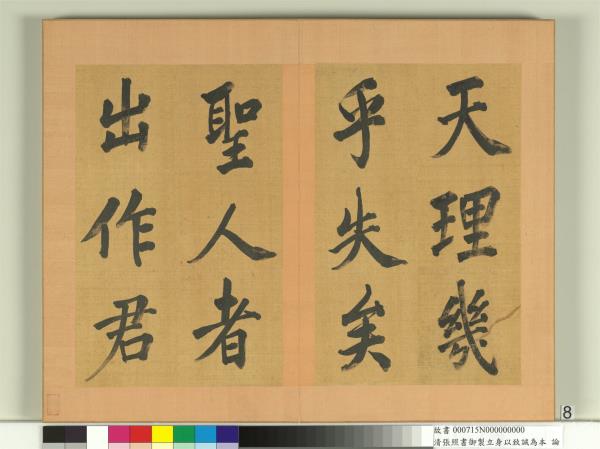 天理幾
乎失矣
聖人者
出作君
8
故書 000715N000000000
清張照書御製立身以致誠為本 論